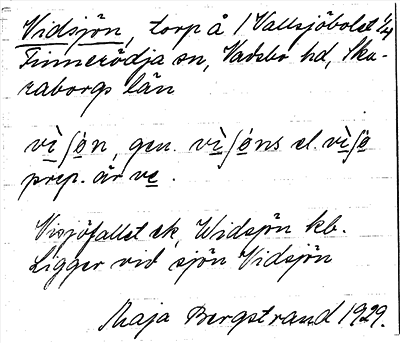 Vidsjön, torp å 1 Vallsjöbolet 1/4
Finnerödja sn, Vadsbo hd, Ska-
raborgs län
vìʃön, gen. vìʃöns el. vìʃö
prep. är ve.
Visjöfallet ek, Widsjön kb.
Ligger vid sjön Vidsjön
Maja Bergstrand 1929.